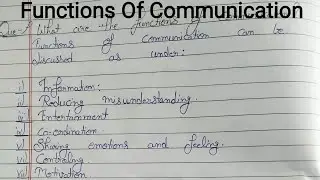 Functions Of Communication
Que- What are the functions of
Functions of communication can be
discussed as under:
i) Information:
ii) Reducing misunderstanding
iii) Entertainment
iv) Co-ordination
v) Sharing emotions and feeling.
vi) Controling
vii) Motivation